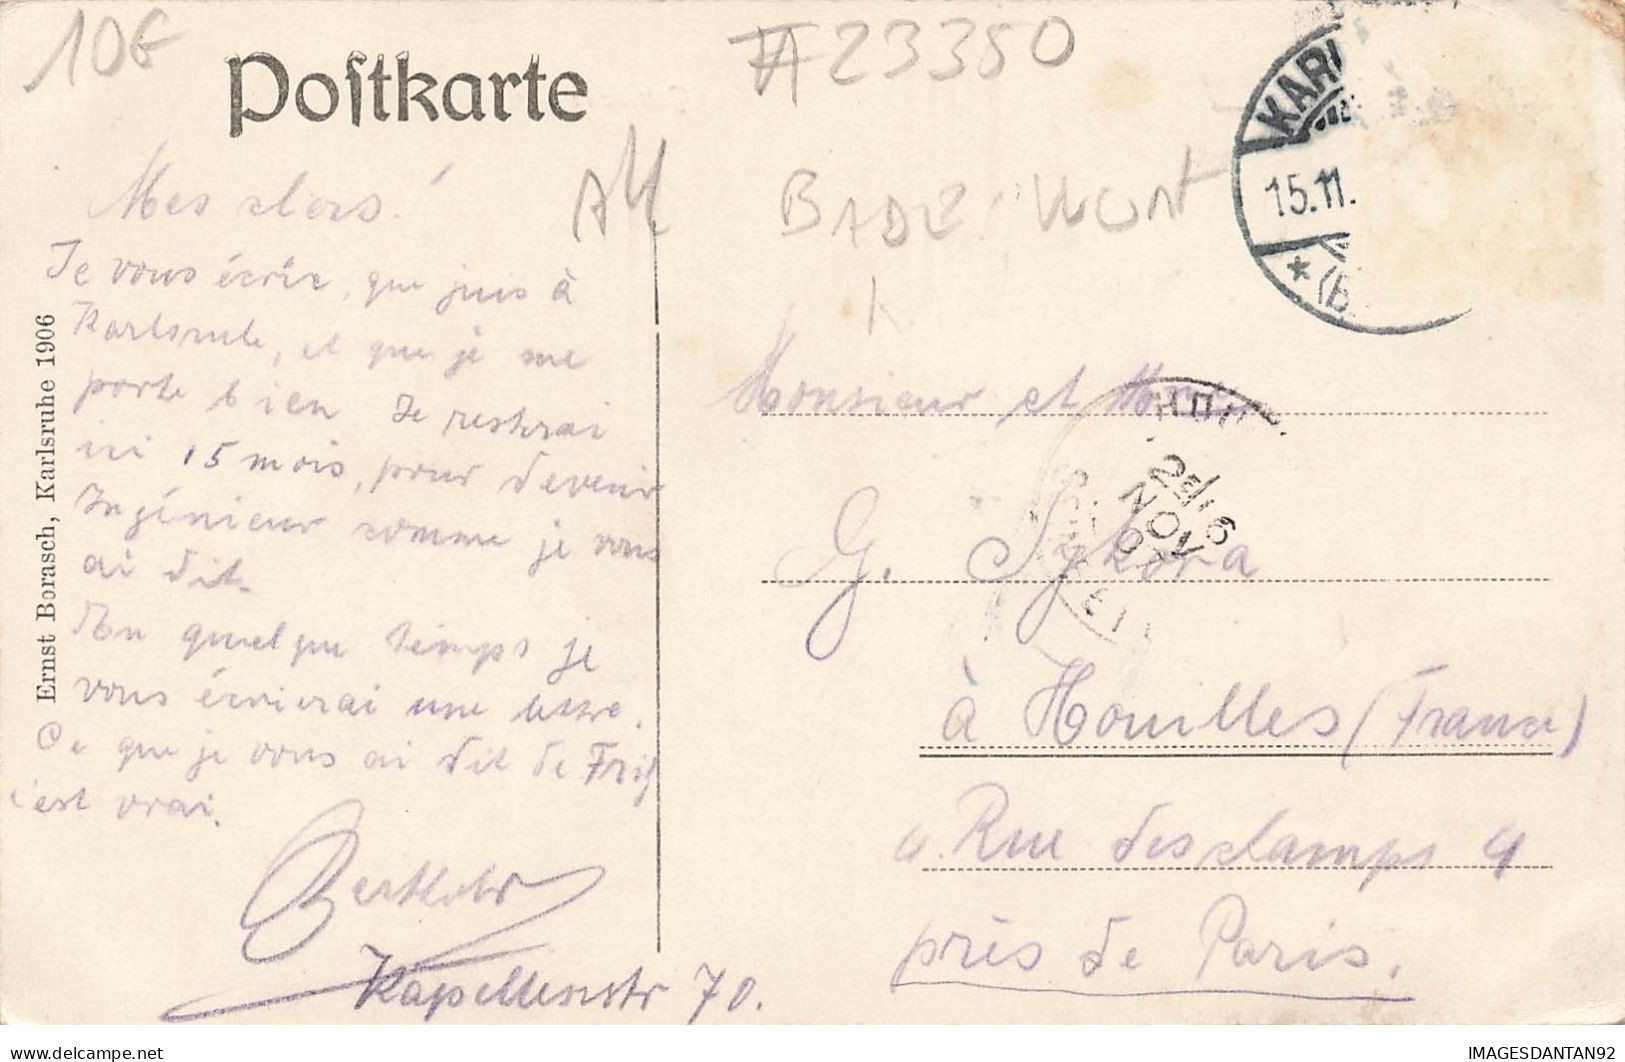 10€
Postkarte
#23350
All
BADE WURT
KARL
15.11.
* (B
Mes chers!
Je vous écris, que juis à
Karlsruhe, et que je me
porte bien Je resterai
ici 15 mois, pour devenir
Ingénieur comme je vous
ai dit.
En quelque temps je
vous écrierai une lettre.
Ce que je vous ai dit de
c'est vrai.
Berthold
Kapellenstr 70.
Ernst Borasch, Karlsruhe 1906
Monsieur et
G. Sykora
à Houilles (France)
4. Rue des champs 4
près de Paris.
NOV
IMAGESDANTAN92
delcampe.net